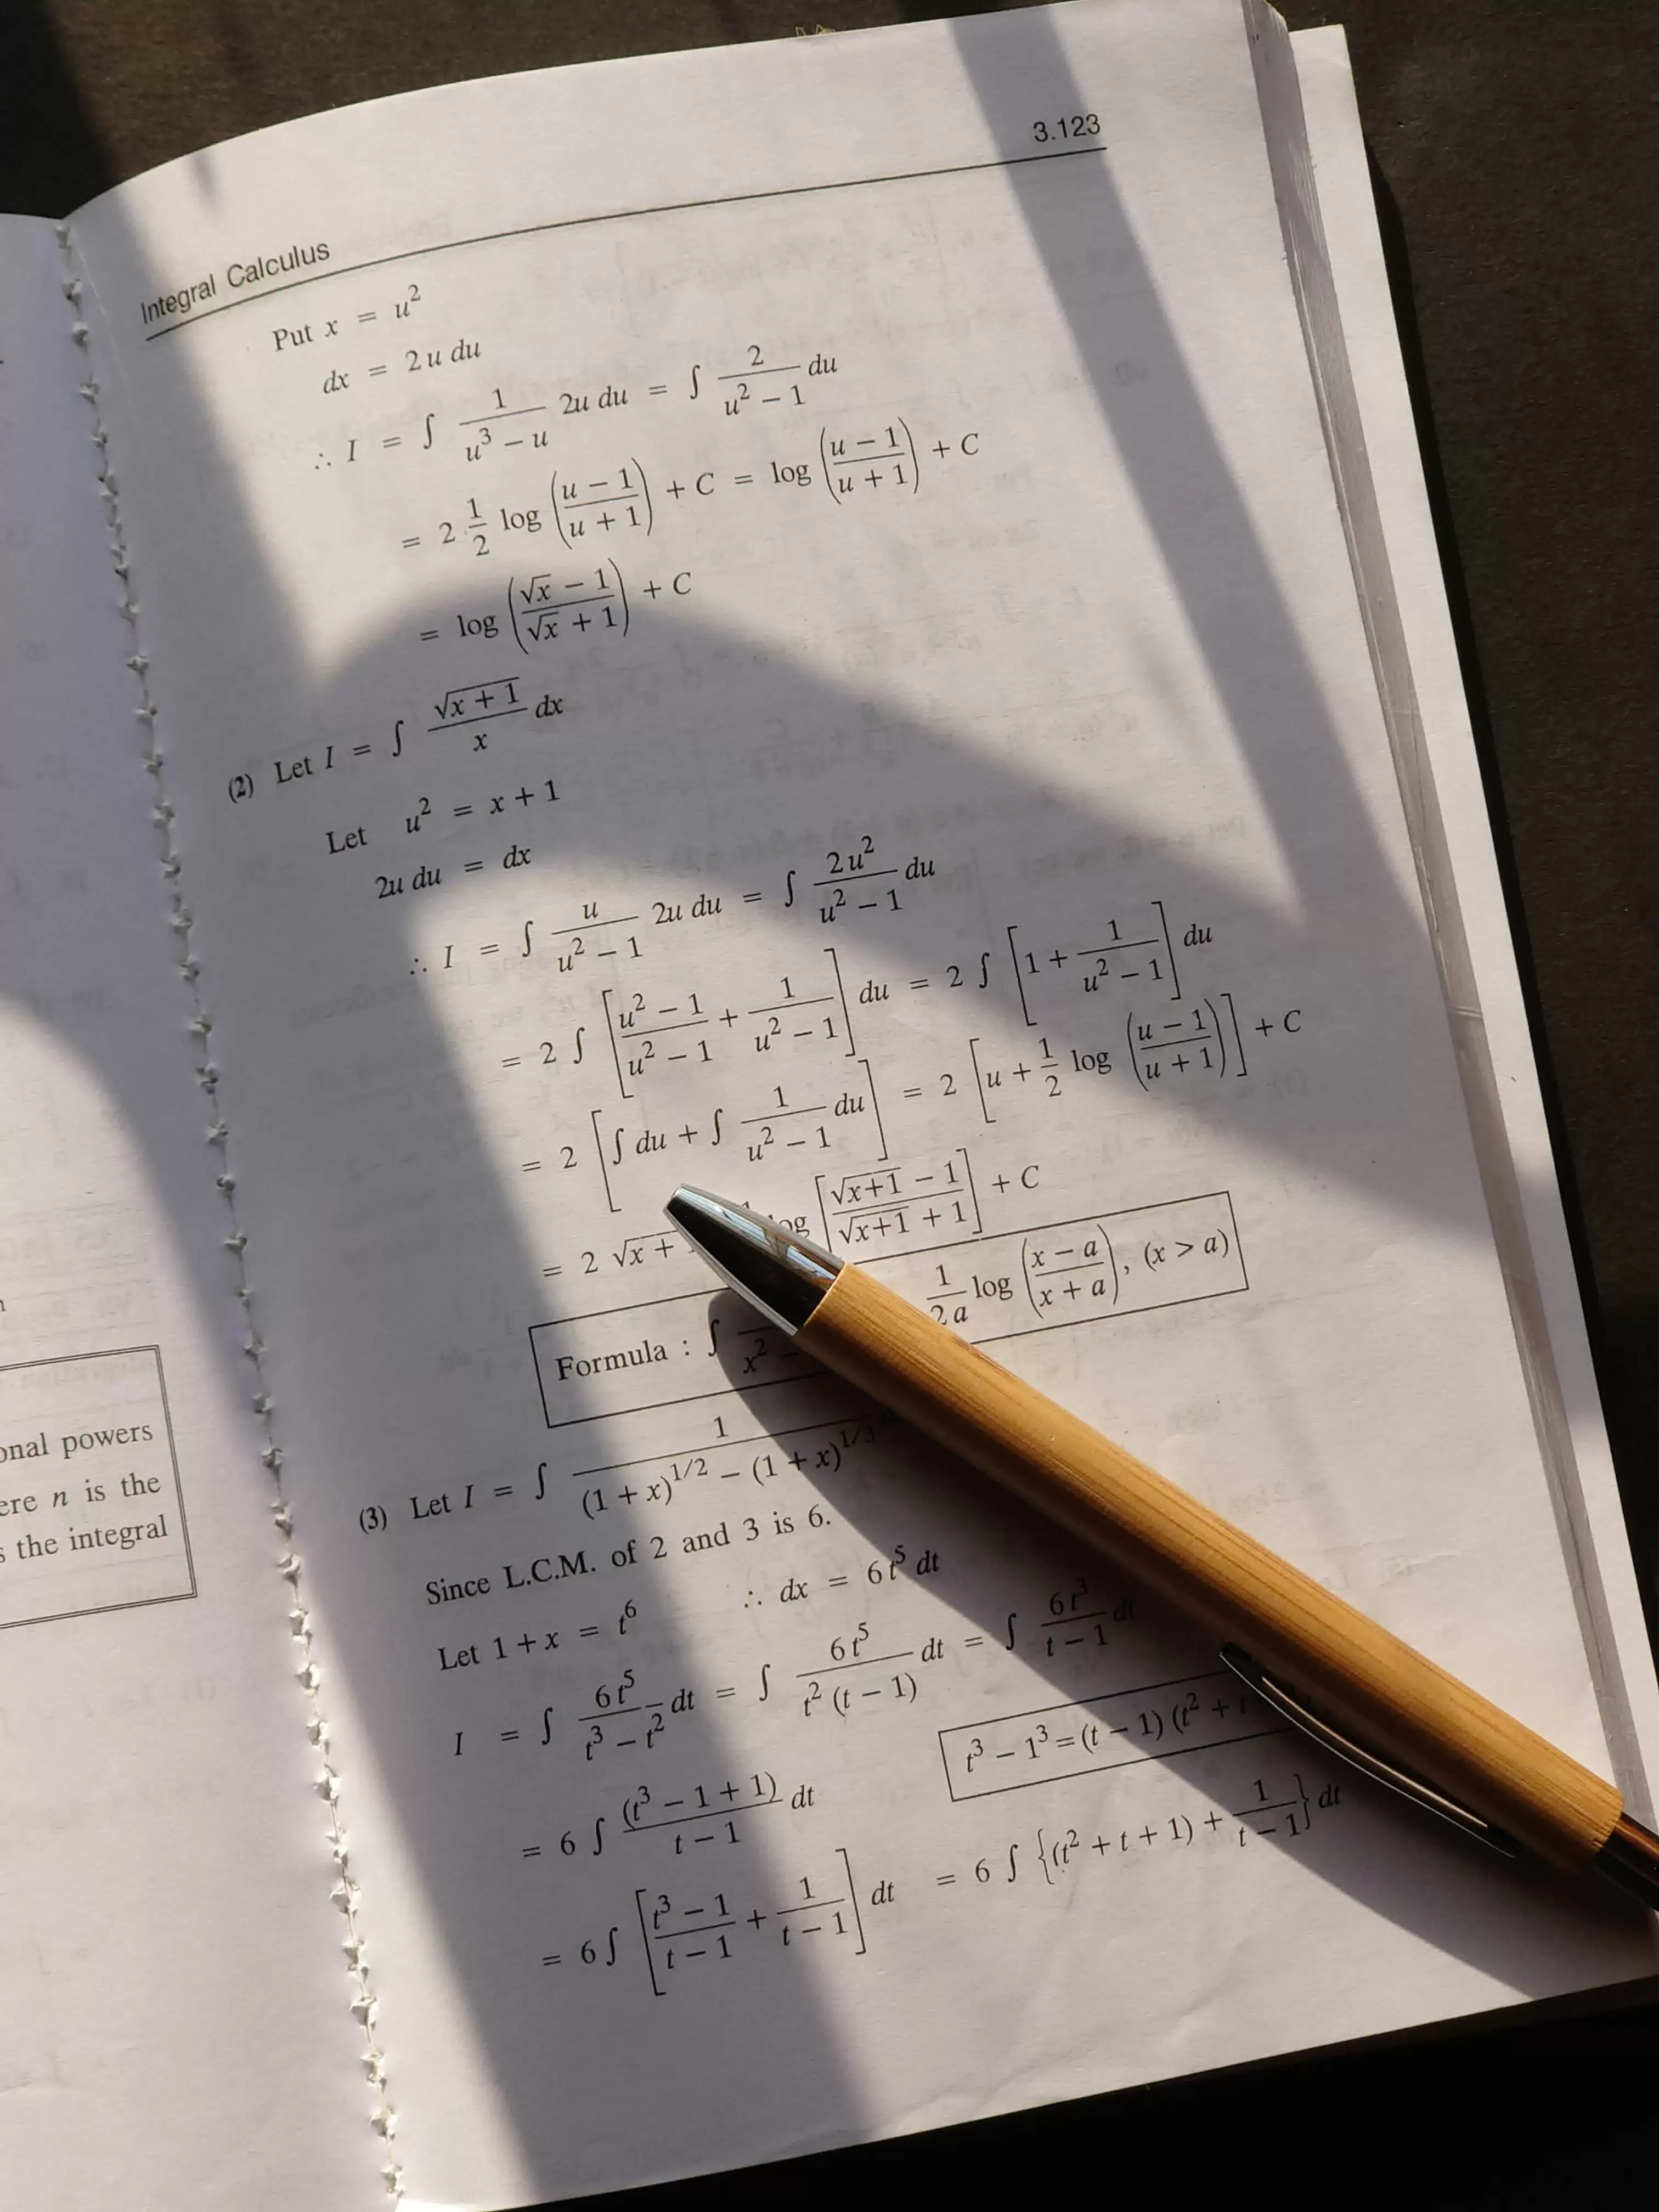 onal powers
ere n is the
s the integral
3.123
Integral Calculus
Put x = u²
dx = 2 u du
∴ I = ∫ 1/(u³ − u) 2u du = ∫ 2/(u² − 1) du
= 2 · 1/2 log ((u − 1)/(u + 1)) + C = log ((u − 1)/(u + 1)) + C
= log ((√x − 1)/(√x + 1)) + C
(2) Let I = ∫ √(x + 1)/x dx
Let u² = x + 1
2u du = dx
∴ I = ∫ u/(u² − 1) 2u du = ∫ 2 u²/(u² − 1) du
= 2 ∫ [(u² − 1)/(u² − 1) + 1/(u² − 1)] du = 2 ∫ [1 + 1/(u² − 1)] du
= 2 [∫ du + ∫ 1/(u² − 1) du] = 2 [u + 1/2 log ((u − 1)/(u + 1))] + C
= 2 √x + og [(√(x+1) − 1)/(√(x+1) + 1)] + C
Formula : ∫ x² − 1/(2 a) log ((x − a)/(x + a)), (x > a)
(3) Let I = ∫ 1/((1 + x)^1/2 − (1 + x)^1/3
Since L.C.M. of 2 and 3 is 6.
Let 1 + x = t⁶ ∴ dx = 6 t⁵ dt
I = ∫ 6 t⁵/(t³ − t²) dt = ∫ 6 t⁵/(t² (t − 1)) dt = ∫ 6 t³/(t − 1) dt
t³ − 1³ = (t − 1) (t² + t
= 6 ∫ (t³ − 1 + 1)/(t − 1) dt
= 6 ∫ [(t³ − 1)/(t − 1) + 1/(t − 1)] dt = 6 ∫ {(t² + t + 1) + 1/(t − 1)} dt